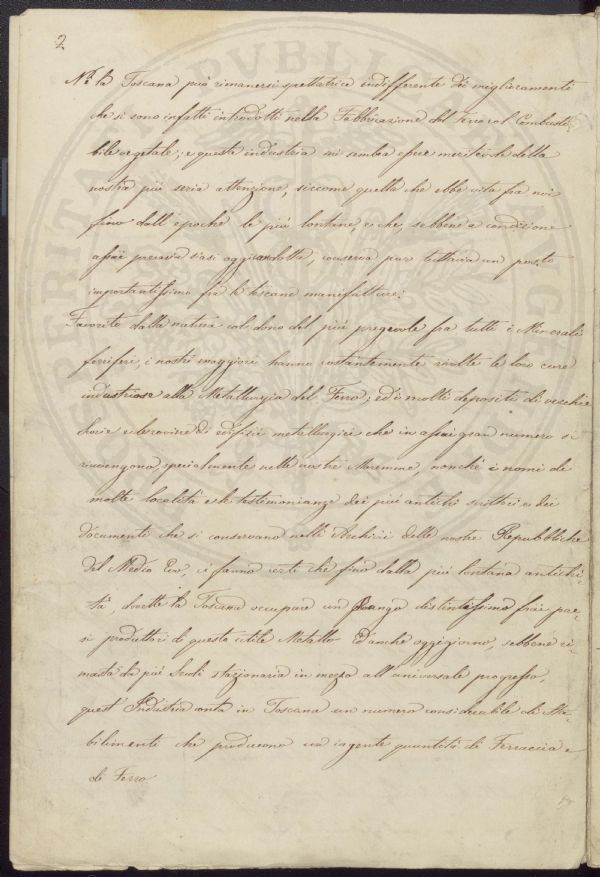 2
Nè la Toscana può rimanersi spettatrice indifferente dei miglioramenti
che si sono infatti introdotti nella Fabbricazione del Ferro col Combusti-
bile vegetale; e questa industria mi sembra essere meritevole della
nostra più seria attenzione, siccome quella che ebbe vita fra noi
fino dall'epoche le più lontane, e che, sebbene a condizione
assai precaria siasi oggi ridotta, conserva pur tuttavia un posto
importantissimo fra le toscane manifatture.
Favorita dalla natura col dono del più pregevole fra tutti i Minerali
ferriferi, i nostri maggiori hanno costantemente rivolte le loro cure
industriose alla Metallurgia del Ferro; ed i molti depositi di vecchie
Scorie e le rovine di edifizi metallurgici che in assai gran numero si
rinvengono, specialmente nelle nostre Maremme, nonchè i nomi di
molte località e le testimonianze dei più antichi scrittori e dei
documenti che si conservano nelli Archivi delle nostre Repubbliche
del Medio Evo, ci fanno certi che fino dalla più lontana antichi-
tà, dovette la Toscana occupare un rango distintissimo frai pae-
si produttori di questo utile Metallo. Ed anche oggigiorno, sebbene ri-
masta da più Secoli stazionaria in mezzo all'universale progresso,
quest'Industria conta in Toscana un numero considerabile di Sta-
bilimenti che producono un ingente quantità di Ferraccio e
di Ferro